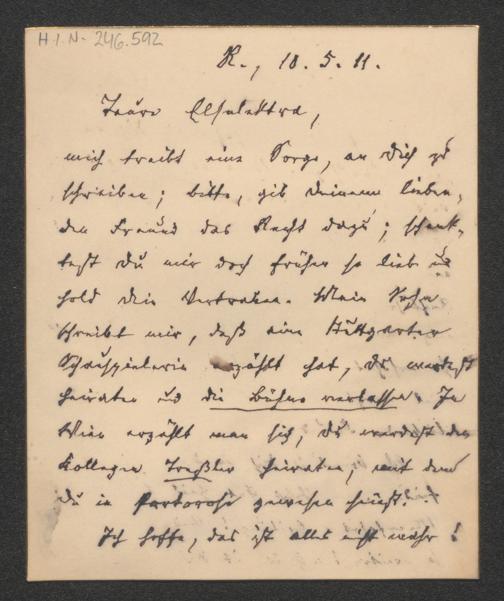 H.I.N- 246.592
R., 10. 5. 11.
Teure Elsalektra,
mich treibt eine Sorge, an Dich zu
schreiben; bitte, gib Deinem lieben,
den Freund das Recht dazu; schenk-
test Du mir doch früher so lieb und
hold Dein Vertrauen. Mein Sohn
schreibt mir, daß eine Stuttgarter
Schauspielerin erzählt hat, Du werdest
heiraten und die Bühne verlassen. In
Wien erzählt man sich, Du werdest den
Kollegen Treßler heiraten, mit dem
Du in Portorose gewesen seist!
Ich hoffe, das ist alles nicht wahr!